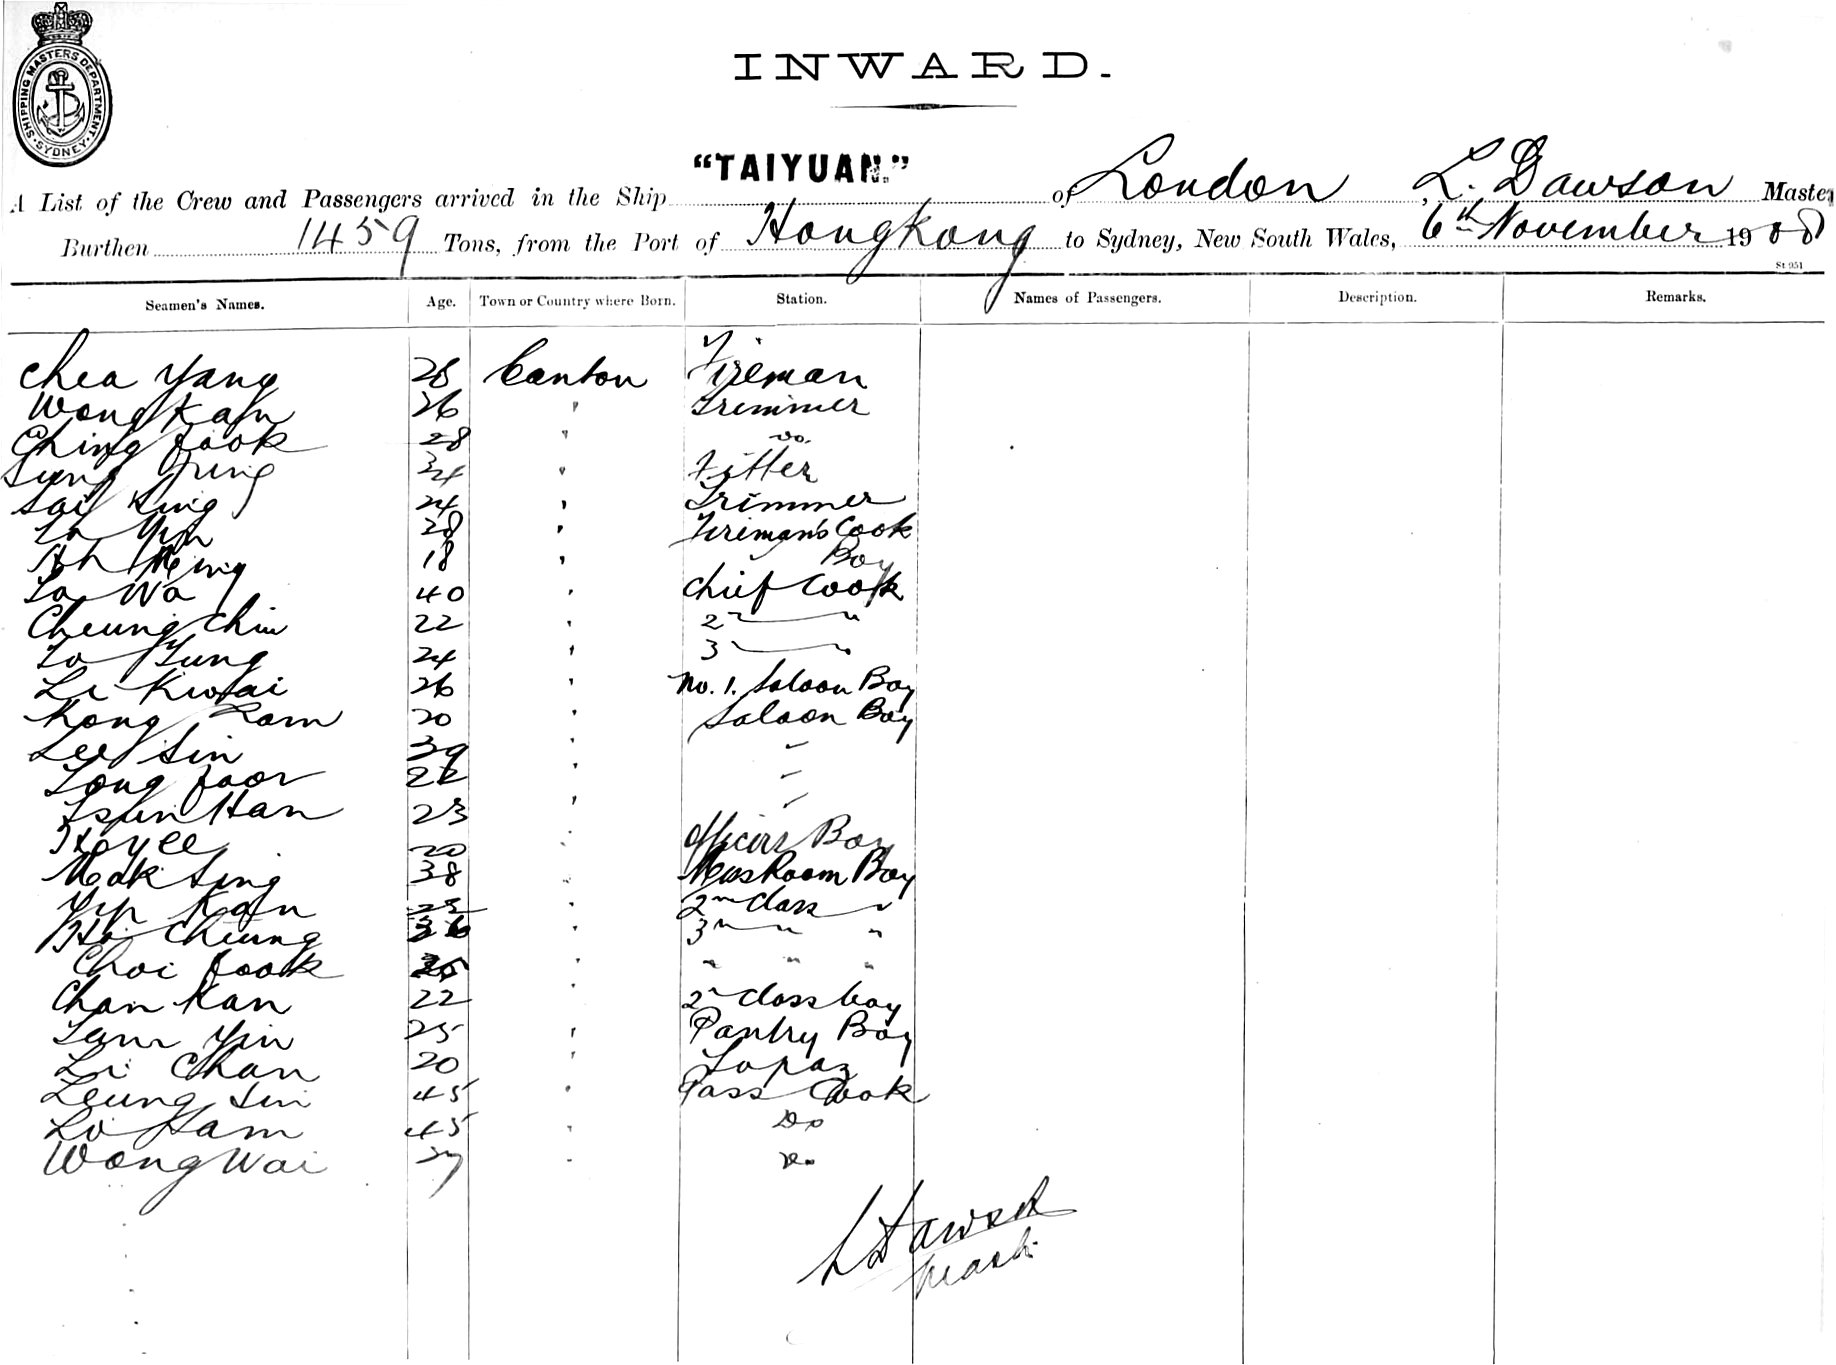 SHIPPING MASTERS DEPARTMENT · SYDNEY ·
INWARD.
A List of the Crew and Passengers arrived in the Ship "TAIYUAN." of London, L. Dawson Master
Burthen 1459 Tons, from the Port of Hongkong to Sydney, New South Wales, 6th November 1908
St 951
Seamen's Names. Age. Town or Country where Born. Station. Names of Passengers. Description. Remarks.
Chea Yang 28 Canton Fireman
Wong Kan 26 " Trimmer
Ching fook 28 " do.
Sung Yung 34 " Fitter
Sai King 24 " Trimmer
28 " Fireman's Cook
Ah 18 " Boy
Lo Wa 40 " Chief Cook
Cheung Chiu 22 " 2 "
Lo Yung 24 " 3 "
Li Kwai 26 " No. 1. Saloon Boy
Kong Lam 20 " Saloon Boy
Lee Sin 39 " "
Tong foor 22 " "
Tsun Han 23 " "
Ho yee 20 " Officers Boy
Mok Sing 38 " Mess Room Boy
Yip Kan " 2nd Class "
Ho Cheung 36 " 3 " "
Choi fook " " " "
Chan Kan 22 " 2 Class boy
Lam Yin 25 " Pantry Boy
Li Chan 20 " Lapaz
Leung Sin 45 " Pass Cook
Lo Sam 45 " Do
Wong Wai 37 " Do
L Dawson